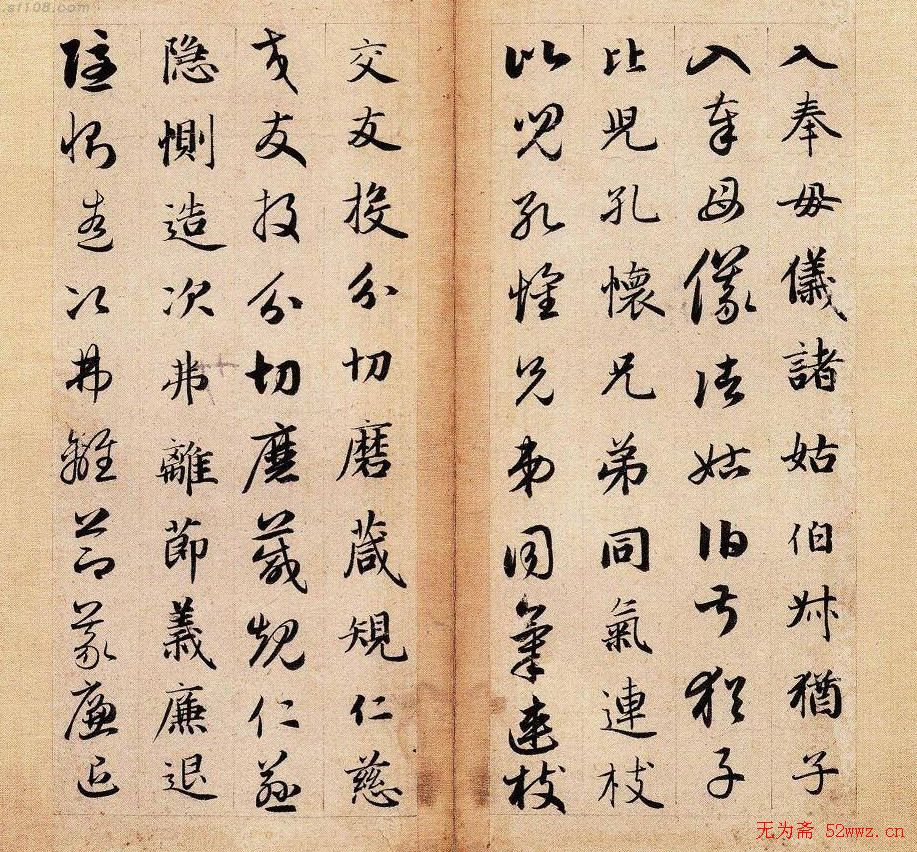 入奉母儀諸姑伯叔猶子
入奉母儀諸姑伯叔猶子
比兒孔懷兄弟同氣連枝
比兒孔懷兄弟同氣連枝
交友投分切磨葴規仁慈
交友投分切磨葴規仁慈
隐惻造次弗離節義廉退
隐惻造次弗離節義廉退
sf108.com
无为斋 52wwz.cn